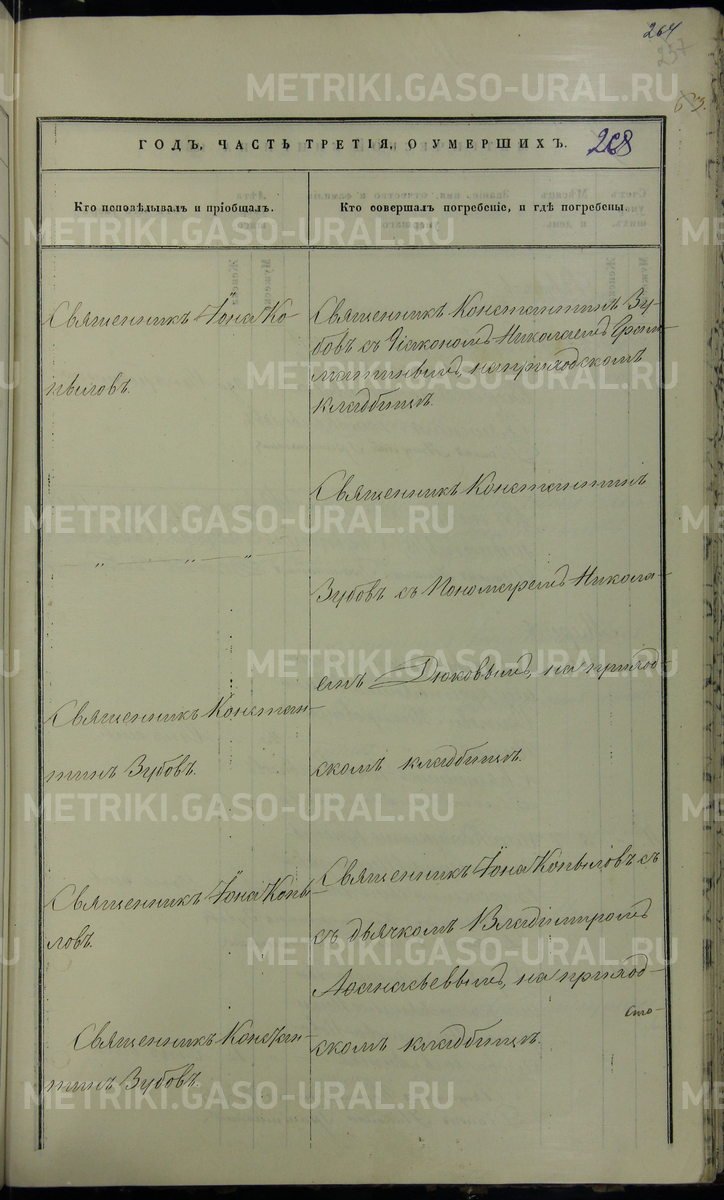 264
257
63.
ГОДЪ, ЧАСТЬ ТРЕТІЯ, О УМЕРШИХЪ.
268
Кто исповѣдывалъ и пріобщалъ.
Кто совершалъ погребеніе, и гдѣ погребены.
Священникъ Іона Ко-
пыловъ.
Священникъ Константинъ Зу-
бовъ съ Діакономъ Николаемъ
на приходскомъ
кладбищѣ.
„ „ „
Священникъ Константинъ
Зубовъ съ Пономаремъ Никола-
емъ Дюковымъ, на приход-
скомъ кладбищѣ.
Священникъ Констан-
тинъ Зубовъ.
Священникъ Іона Копы-
ловъ.
Священникъ Іона Копыловъ съ
съ дьячкомъ Владиміромъ
Аѳанасьевымъ, на приход-
скомъ кладбищѣ.
Священникъ Констан-
тинъ Зубовъ.
METRIKI.GASO-URAL.RU